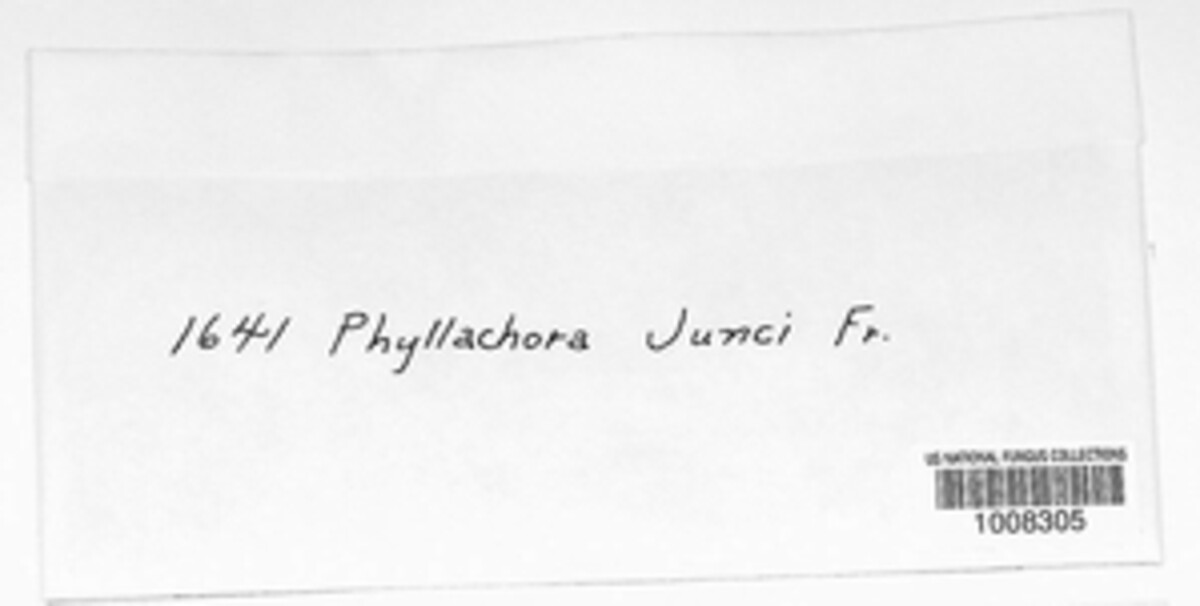 1641 Phyllachora Junci Fr.
US NATIONAL FUNGUS COLLECTIONS
1008305